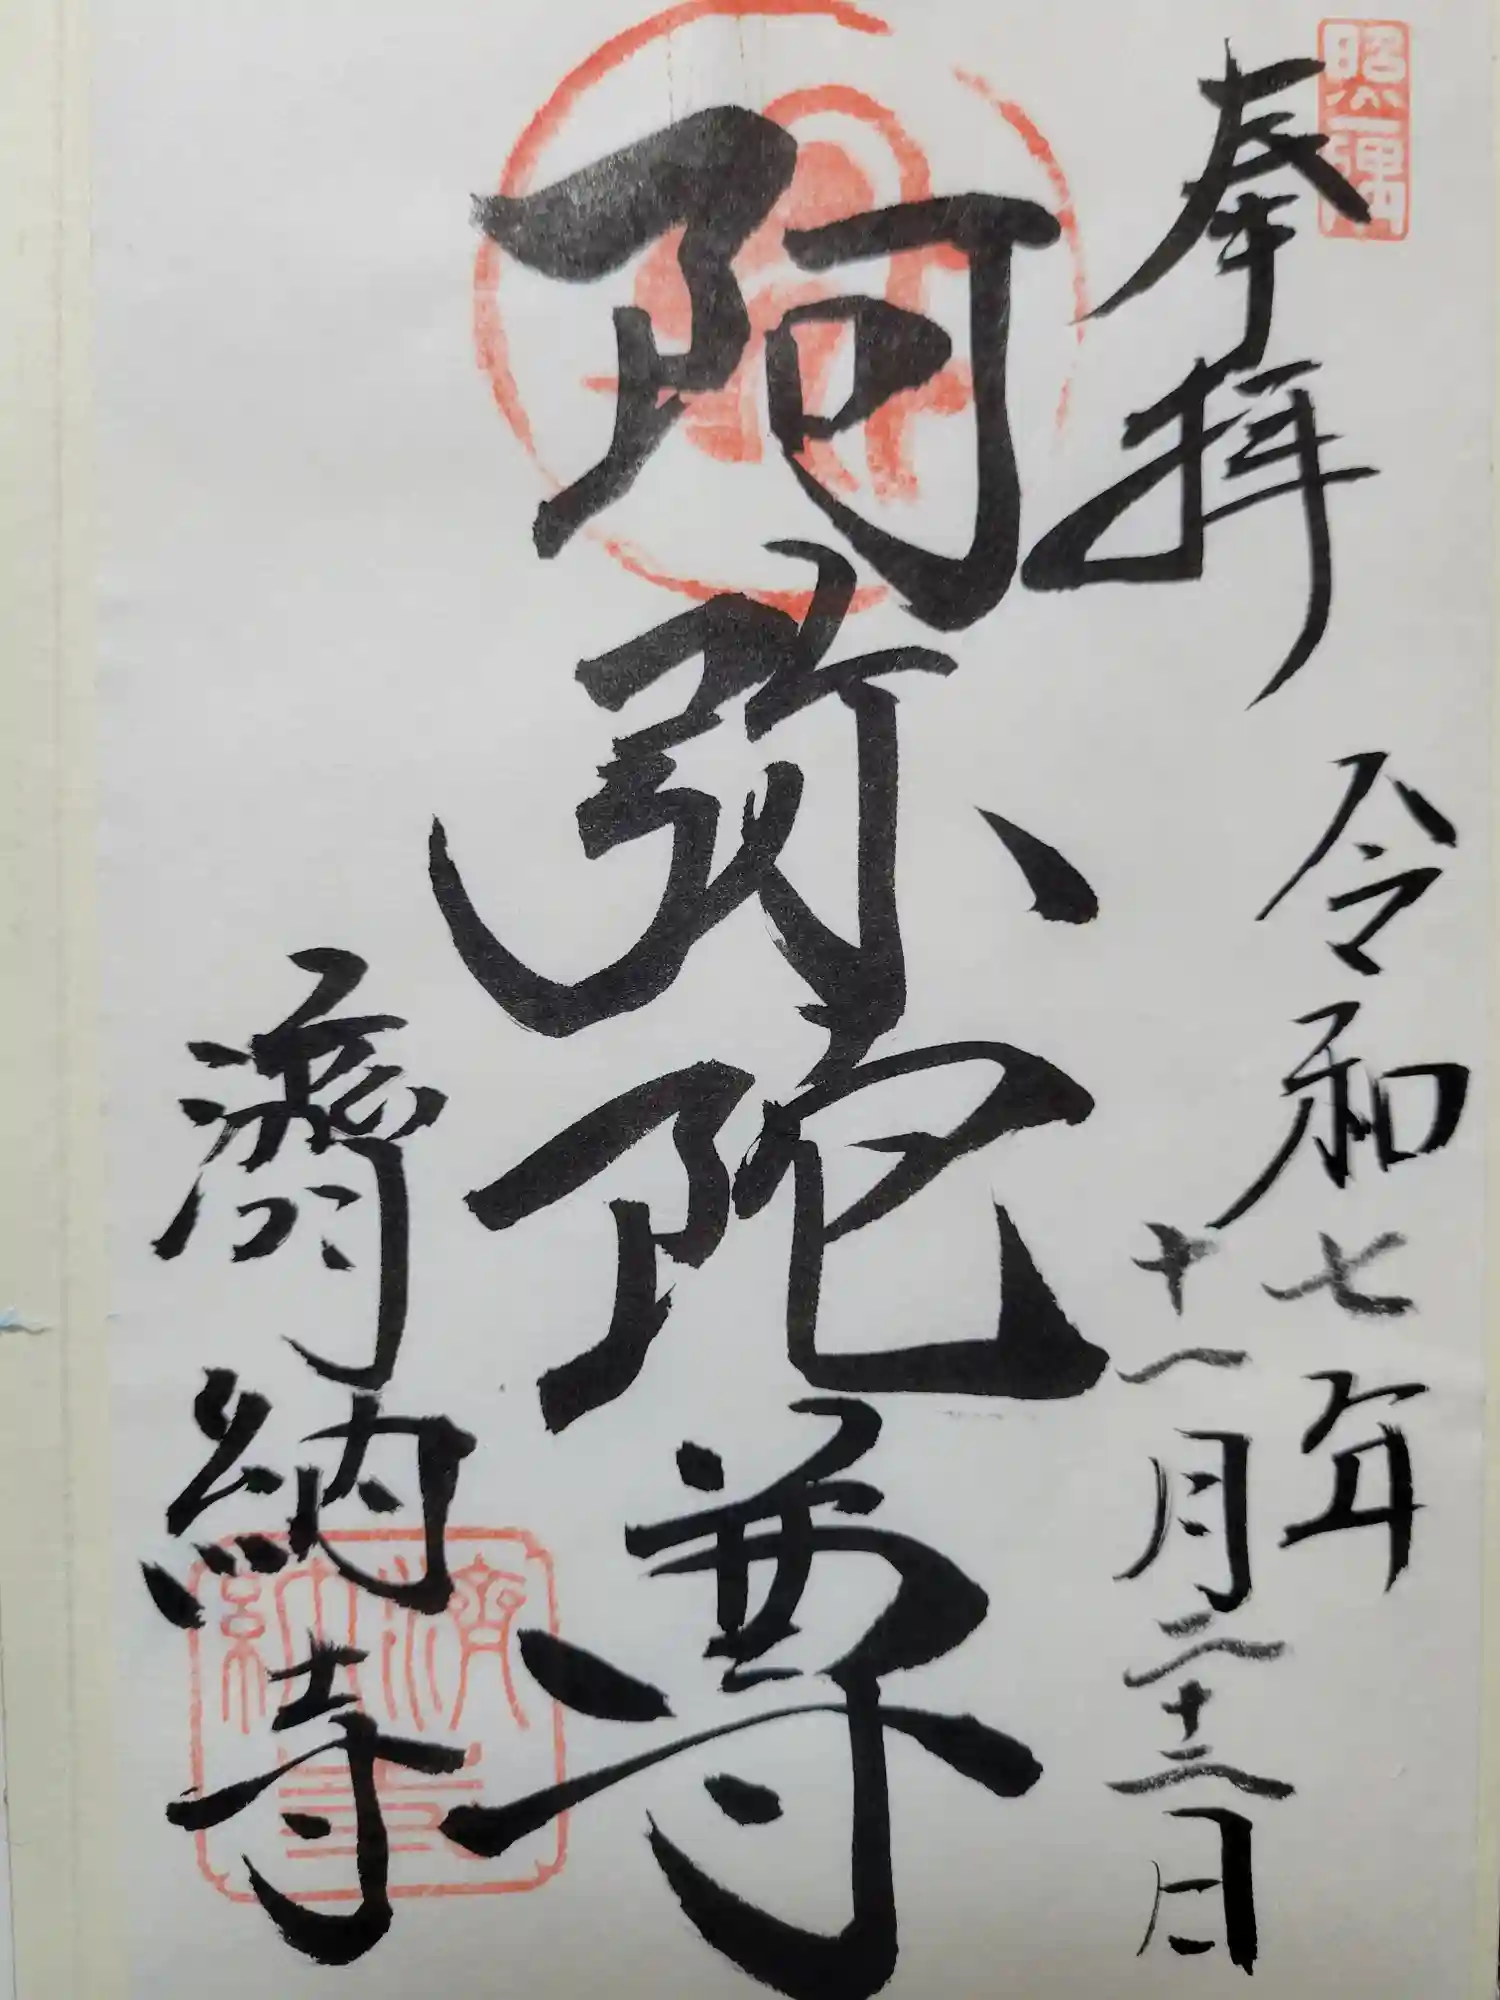 奉拝
令和七年
十一月二十三日
阿弥陀尊
濟納寺
濟納寺
照一隅